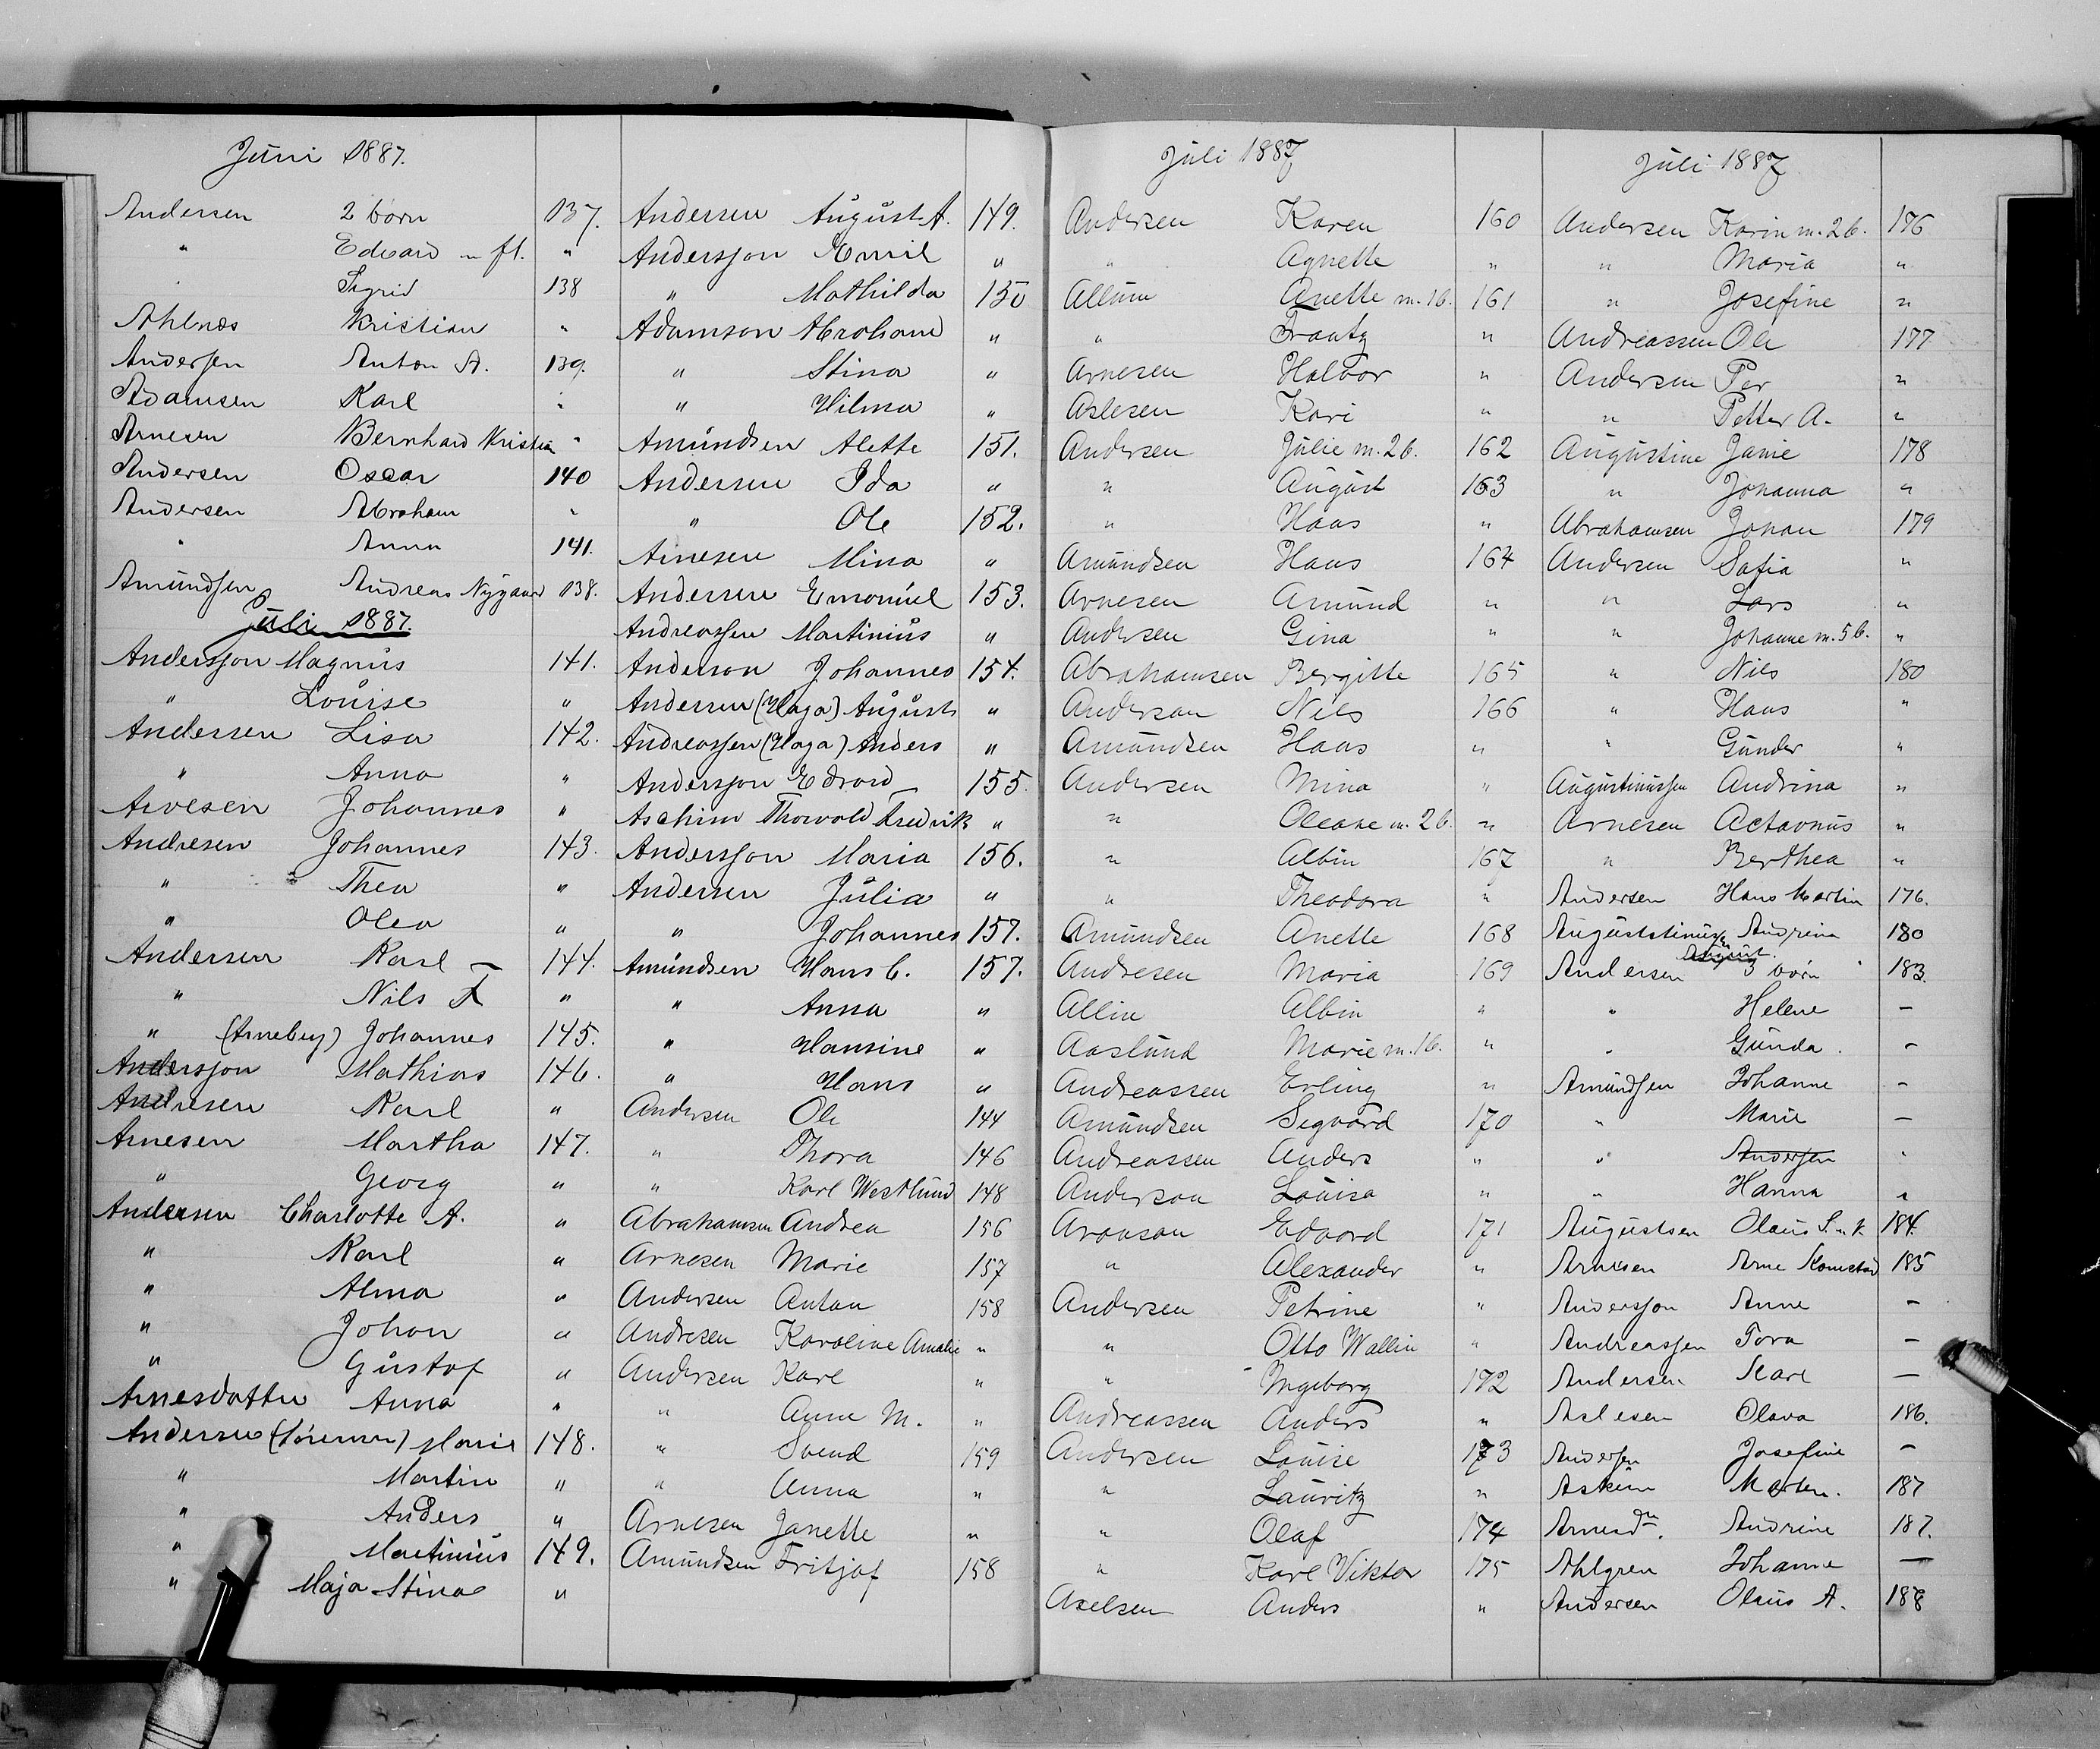 Juni 1887.
Andersen 2 børn 137.
" Edvard m fl. "
" Sigrid 138
Ahlnæs Kristian "
Andersen Anton A. 139.
Adamsen Karl "
Arnesen Bernhard Kristian "
Andersen Oscar 140
Andersen Abraham "
" Anna 141.
Amundsen Andreas Nygaard 138.
Juli 1887.
Andersson Magnus 141.
" Louise "
Andersen Lisa 142.
" Anna "
Arvesen Johannes "
Andresen Johannes 143.
" Thea "
" Olea "
Andersen Karl 144.
" Nils "
" (Arneberg) Johannes 145.
Andersson Mathias 146.
Andresen Karl "
Arnesen Martha 147.
" Georg "
Andersen Charlotte A. "
" Karl "
" Alma "
" Johan "
" Gustaf "
Arnesdatter Anna "
Andersen (Sørensen) Marie 148.
" Martin "
" Anders "
" Martinius 149.
" Maja Stina "
Andersen August A. 149.
Andersson Emil "
" Mathilda 150
Adamson Abraham "
" Stina "
" Hilma "
Amundsen Alette 151.
Andersen Ida "
" Ole 152.
Arnesen Mina "
Andersen Emanuel 153.
Andreassen Martinius "
Anderson Johannes 154.
Andersen (Haga) August "
Andreassen (Haga) Anders "
Andersson Edvard 155.
Aschim Thorvald Fredrik "
Andersson Maria 156.
Andersen Julia "
" Johannes 157.
Amundsen Hans C. 157.
" Anna "
" Hansine "
" Hans "
Andersen Ole 144
" Thora 146
" Karl Westlund 148
Abrahamsen Andrea 156
Arnesen Marie 157
Andersen Anton 158
Andresen Karoline Amalie "
Andersen Karl "
" Anne M. "
" Svend 159
" Anna "
Arnesen Janette "
Amundsen Fritjof 158
Juli 1887
Andersen Karen 160
" Agnette "
Allum Anette m. 1 b. 161
" Frantz "
Arnesen Halvor "
Aslesen Kari "
Andersen Julie m. 2 b. 162
" August 163
" Hans "
Amundsen Hans 164
Arnesen Amund "
Andersen Gina "
Abrahamsen Bergitte 165
Anderson Nils 166
Amundsen Hans "
Andersen Mina "
" Oleane m. 2 b. "
" Albin 167
" Theodora "
Amundsen Anette 168
Andresen Maria 169
Allin Albin "
Aaslund Marie m. 1 b. "
Andreassen Erling "
Amundsen Sigvard 170
Andreassen Anders "
Anderson Louisa "
Aronson Edvard 171
" Alexander "
Andersen Petrine "
" Otto Wallin "
" Ingeborg 172
Andreassen Anders "
Andersen Louise 173
" Lauritz "
" Olaf 174
" Karl Viktor 175
Axelsen Anders "
Juli 1887
Andersen Karin m. 2 b. 176
" Maria "
" Josefine "
Andreassen Ole 177
Andersen Per "
" Petter A. "
Augustine Janie 178
" Johanna "
Abrahamsen Johan 179
Andersen Sofia "
" Lars "
" Johanne m. 5 b. "
" Nils 180
" Hans "
" Gunder "
Augustinussen Andrina "
Arnesen Actavnus "
" Berthea "
Andersen Hans Martin 176.
Auguststinussen Andrine 180
August.
Andersen 3 børn 183.
" Helene –
" Gunda –
Amundsen Johanne –
" Marie –
" Andersen "
" Hanna "
Augustsen Olaus S. 184.
Arnesen Arne 185
Andersson Anne –
Andreassen Tora –
Andersen Karl –
Aslesen Olava 186.
Andersen Josefine –
Askim Marten. 187
Arnesdn. Andrine 187.
Ahlgren Johanne –
Andersen Olaus A. 188